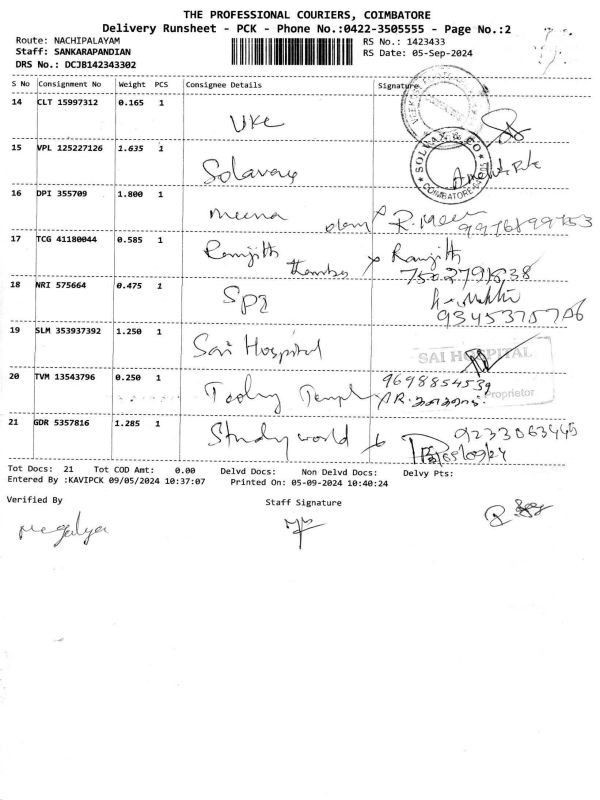 THE PROFESSIONAL COURIERS, COIMBATORE
Delivery Runsheet - PCK - Phone No.:0422-3505555 - Page No.:2
Route: NACHIPALAYAM
RS No.: 1423433
Staff: SANKARAPANDIAN
RS Date: 05-Sep-2024
DRS No.: DCJB142343302
S No Consignment No Weight PCS Consignee Details Signature
14 CLT 15997312 0.165 1
UKC
15 VPL 125227126 1.635 1
SOLVAX & CO
COIMBATORE
16 DPI 355709 1.800 1
meena
R. Meen
17 TCG 41180044 0.585 1
Ranjith Ranjith
18 NRI 575664 0.475 1
19 SLM 353937392 1.250 1
Sai Hospital
SAI HOSPITAL
20 TVM 13543796 0.250 1
9698854539
Proprietor
21 GDR 5357816 1.285 1
Study world
9233063445
Tot Docs: 21 Tot COD Amt: 0.00 Delvd Docs: Non Delvd Docs: Delvy Pts:
Entered By :KAVIPCK 09/05/2024 10:37:07 Printed On: 05-09-2024 10:40:24
Verified By
Staff Signature
megalya